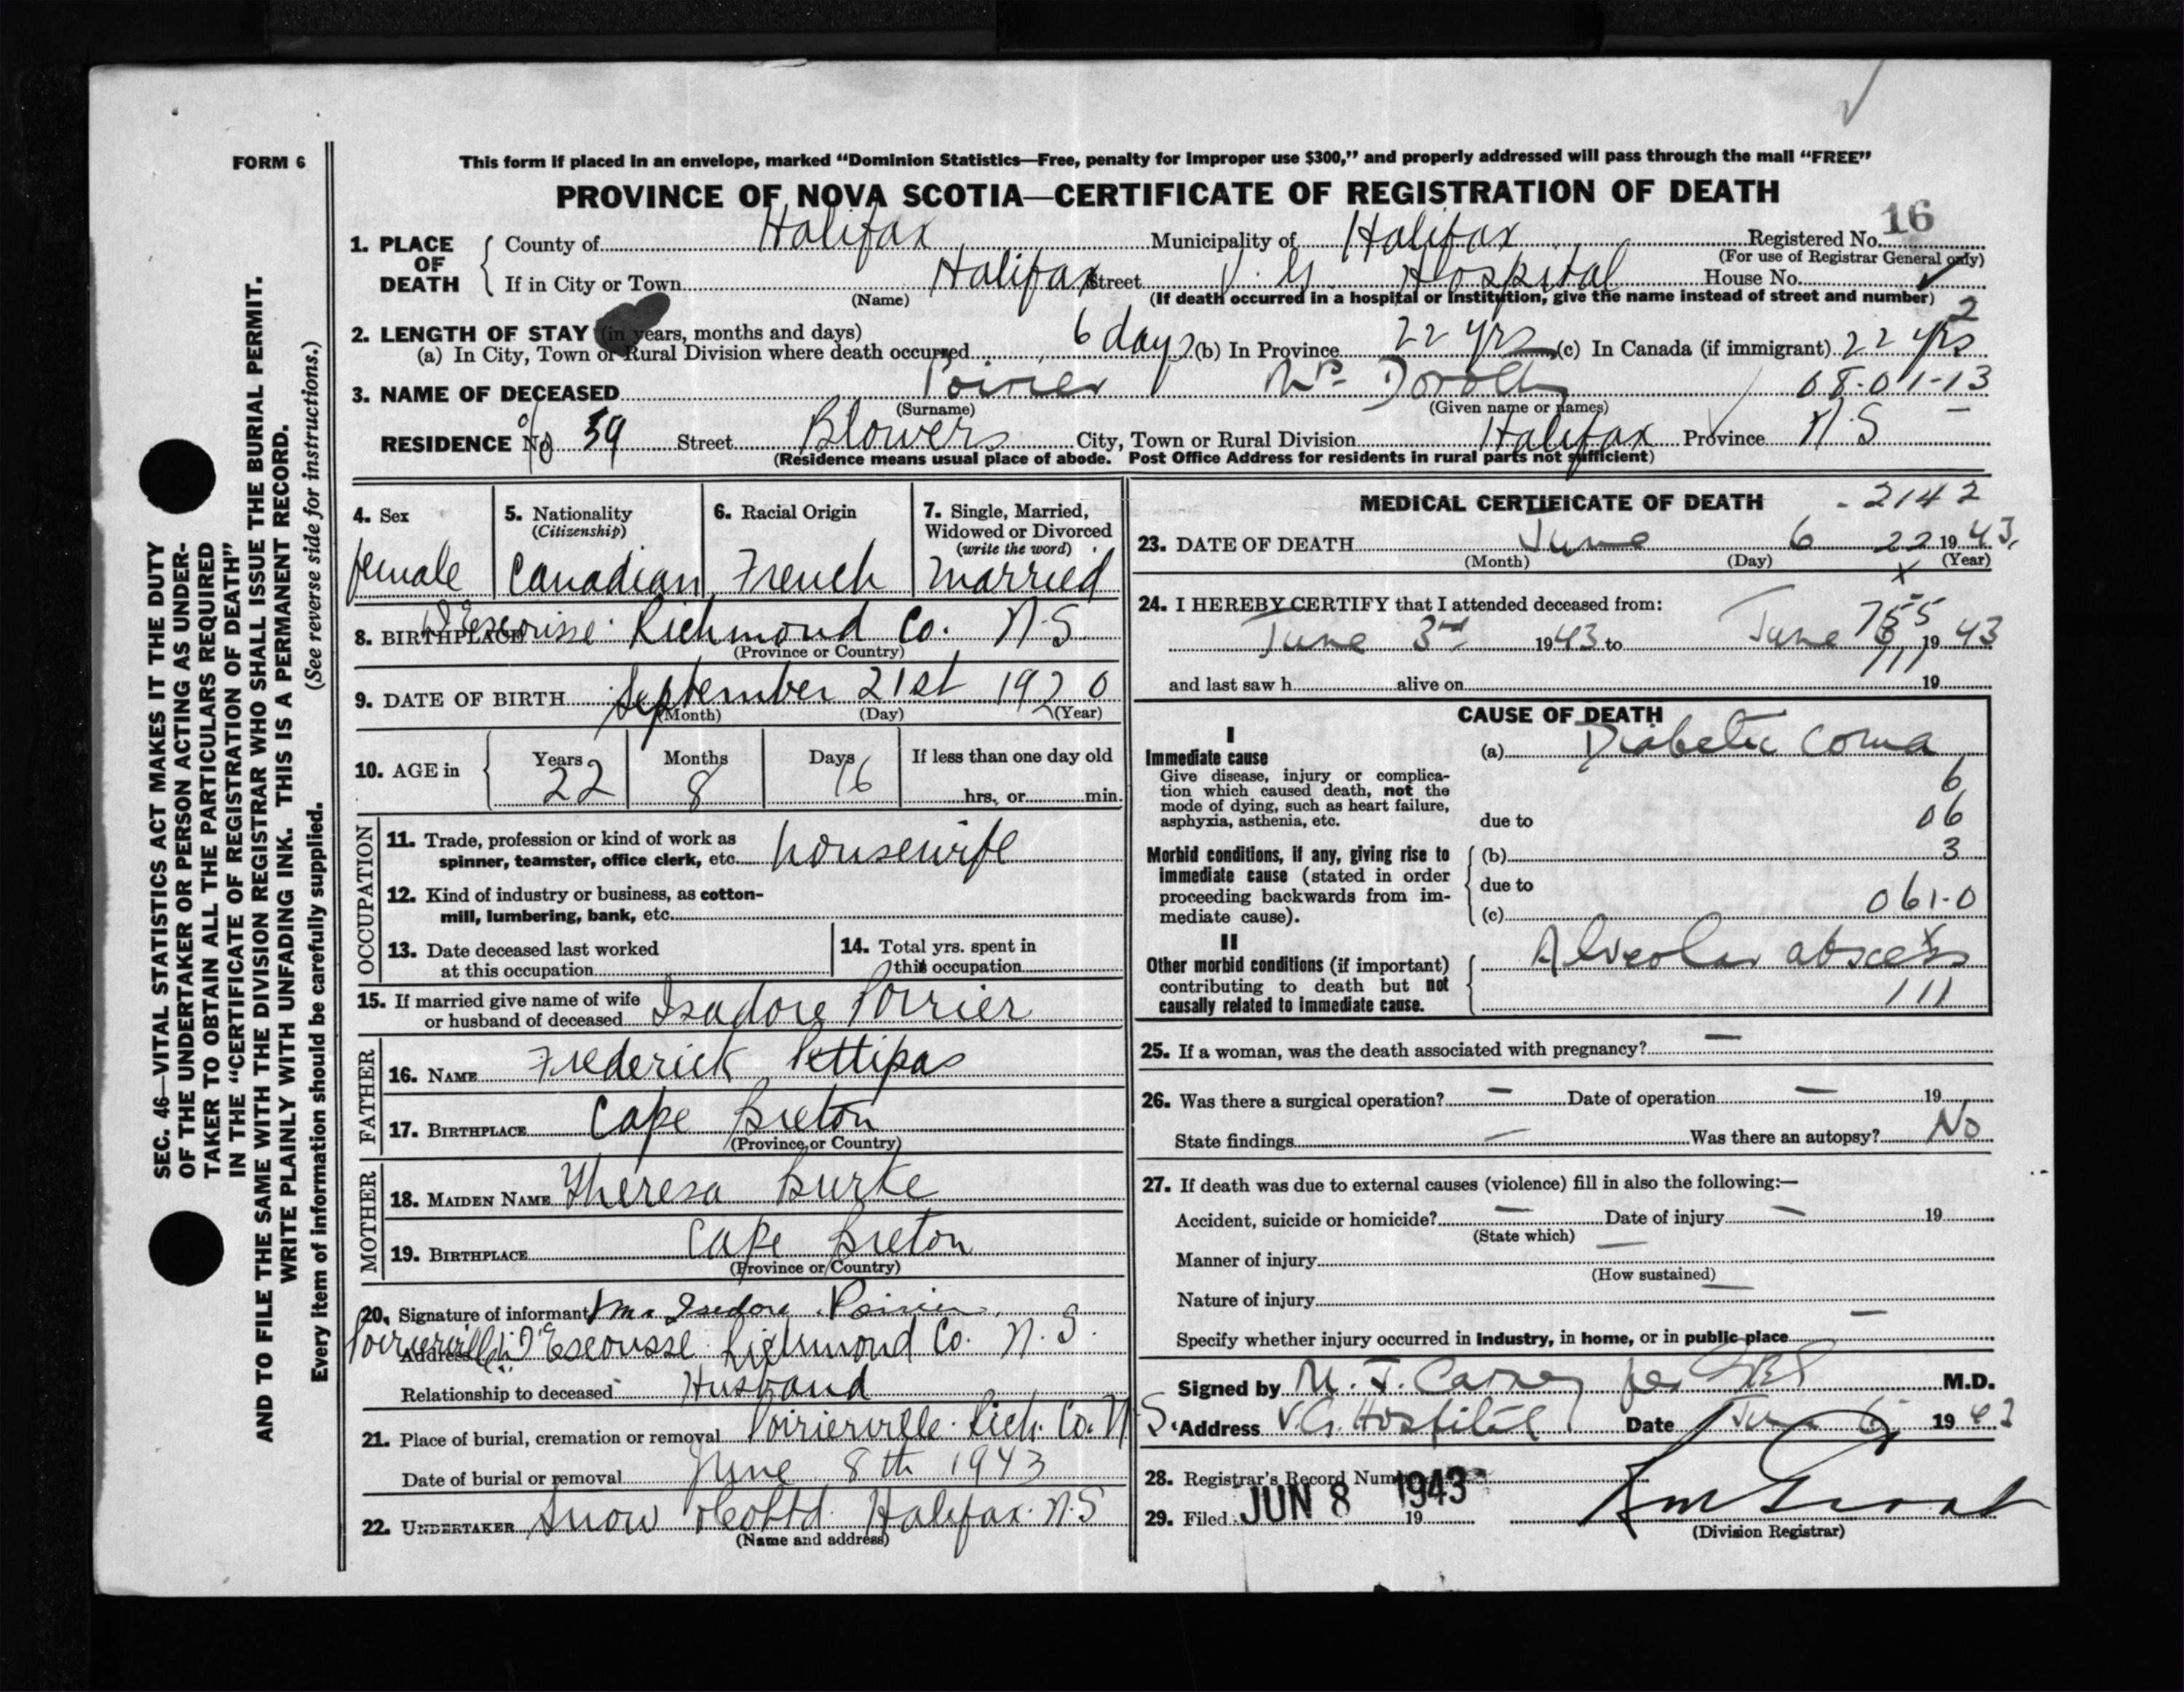 FORM 6
This form if placed in an envelope, marked “Dominion Statistics—Free, penalty for improper use $300,” and properly addressed will pass through the mail “FREE”
PROVINCE OF NOVA SCOTIA—CERTIFICATE OF REGISTRATION OF DEATH
1. PLACE OF DEATH County of Halifax Municipality of Halifax Registered No. 16
(For use of Registrar General only)
If in City or Town Halifax Street V. G. Hospital House No.
(Name) (If death occurred in a hospital or institution, give the name instead of street and number) 2
2. LENGTH OF STAY (in years, months and days)
(a) In City, Town or Rural Division where death occurred 6 days (b) In Province 22 yrs (c) In Canada (if immigrant) 22 yrs
3. NAME OF DECEASED Poirier Mrs Dorothy 08-01-13
(Surname) (Given name or names)
RESIDENCE No. 59 Street Blowers City, Town or Rural Division Halifax Province N.S
(Residence means usual place of abode. Post Office Address for residents in rural parts not sufficient)
4. Sex female
5. Nationality (Citizenship) Canadian
6. Racial Origin French
7. Single, Married, Widowed or Divorced (write the word) married
8. BIRTHPLACE D'Escousse Richmond Co. N.S
(Province or Country)
9. DATE OF BIRTH September 21st 1920
(Month) (Day) (Year)
10. AGE in Years 22 Months 8 Days 16 If less than one day old
hrs. or min.
OCCUPATION
11. Trade, profession or kind of work as
spinner, teamster, office clerk, etc. housewife
12. Kind of industry or business, as cotton-
mill, lumbering, bank, etc.
13. Date deceased last worked
at this occupation
14. Total yrs. spent in
this occupation
15. If married give name of wife
or husband of deceased Isadore Poirier
FATHER
16. NAME Frederick Pettipas
17. BIRTHPLACE Cape Breton
(Province or Country)
MOTHER
18. MAIDEN NAME Theresa Burke
19. BIRTHPLACE Cape Breton
(Province or Country)
20. Signature of informant Isedore Poirier
Address Poirierville D'Escousse Richmond Co. N.S.
Relationship to deceased Husband
21. Place of burial, cremation or removal Poirierville Rich. Co. N.S
Date of burial or removal June 8th 1943
22. UNDERTAKER Snow & Co Ltd. Halifax N.S
(Name and address)
MEDICAL CERTIFICATE OF DEATH - 2142
23. DATE OF DEATH June 6 22 1943.
(Month) (Day) (Year)
x
24. I HEREBY CERTIFY that I attended deceased from:
755
June 3rd 1943 to June 6 1943
111
and last saw h alive on 19
CAUSE OF DEATH
I
Immediate cause (a) Diabetic Coma
Give disease, injury or complica-
tion which caused death, not the
mode of dying, such as heart failure,
asphyxia, asthenia, etc.
6
due to 06
Morbid conditions, if any, giving rise to (b) 3
immediate cause (stated in order due to
proceeding backwards from im-
mediate cause). (c) 061-0
II
Other morbid conditions (if important) Alveolar abscess x
contributing to death but not
causally related to immediate cause. 111
25. If a woman, was the death associated with pregnancy? —
26. Was there a surgical operation? — Date of operation — 19
State findings — Was there an autopsy? No
27. If death was due to external causes (violence) fill in also the following:—
Accident, suicide or homicide? — Date of injury — 19
(State which)
Manner of injury —
(How sustained)
Nature of injury —
Specify whether injury occurred in industry, in home, or in public place —
Signed by per M.D.
Address V.G. Hospital Date 6 1943
28. Registrar's Record Number
29. Filed JUN 8 1943 19
(Division Registrar)
SEC. 46—VITAL STATISTICS ACT MAKES IT THE DUTY
OF THE UNDERTAKER OR PERSON ACTING AS UNDER-
TAKER TO OBTAIN ALL THE PARTICULARS REQUIRED
IN THE “CERTIFICATE OF REGISTRATION OF DEATH”
AND TO FILE THE SAME WITH THE DIVISION REGISTRAR WHO SHALL ISSUE THE BURIAL PERMIT.
WRITE PLAINLY WITH UNFADING INK. THIS IS A PERMANENT RECORD.
Every item of information should be carefully supplied. (See reverse side for instructions.)